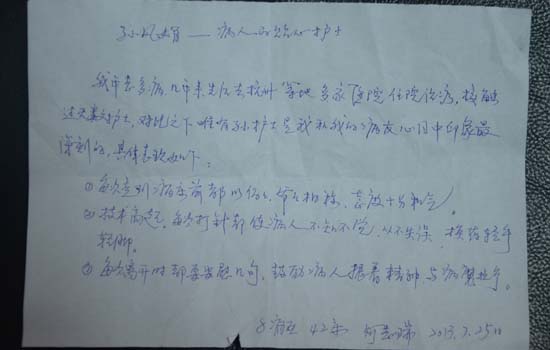 孙凤娟——病人的贴心护士
我年老多病,几年来先后去杭州等地多家医院住院治疗,接触
过无数护士,对比之下唯有孙护士是我和我的病友心目中印象最
深刻的,具体表现如下:
①每次查到病床前都以伯伯、爷爷相称,态度十分和气。
②技术高超,每次打针都使病人不知不觉,从不失误,换药轻手
轻脚。
③每次离开时都要安慰几句,鼓励病人振奋精神与病魔抗争。
8病区 42床 何志瑞 2013.7.25日